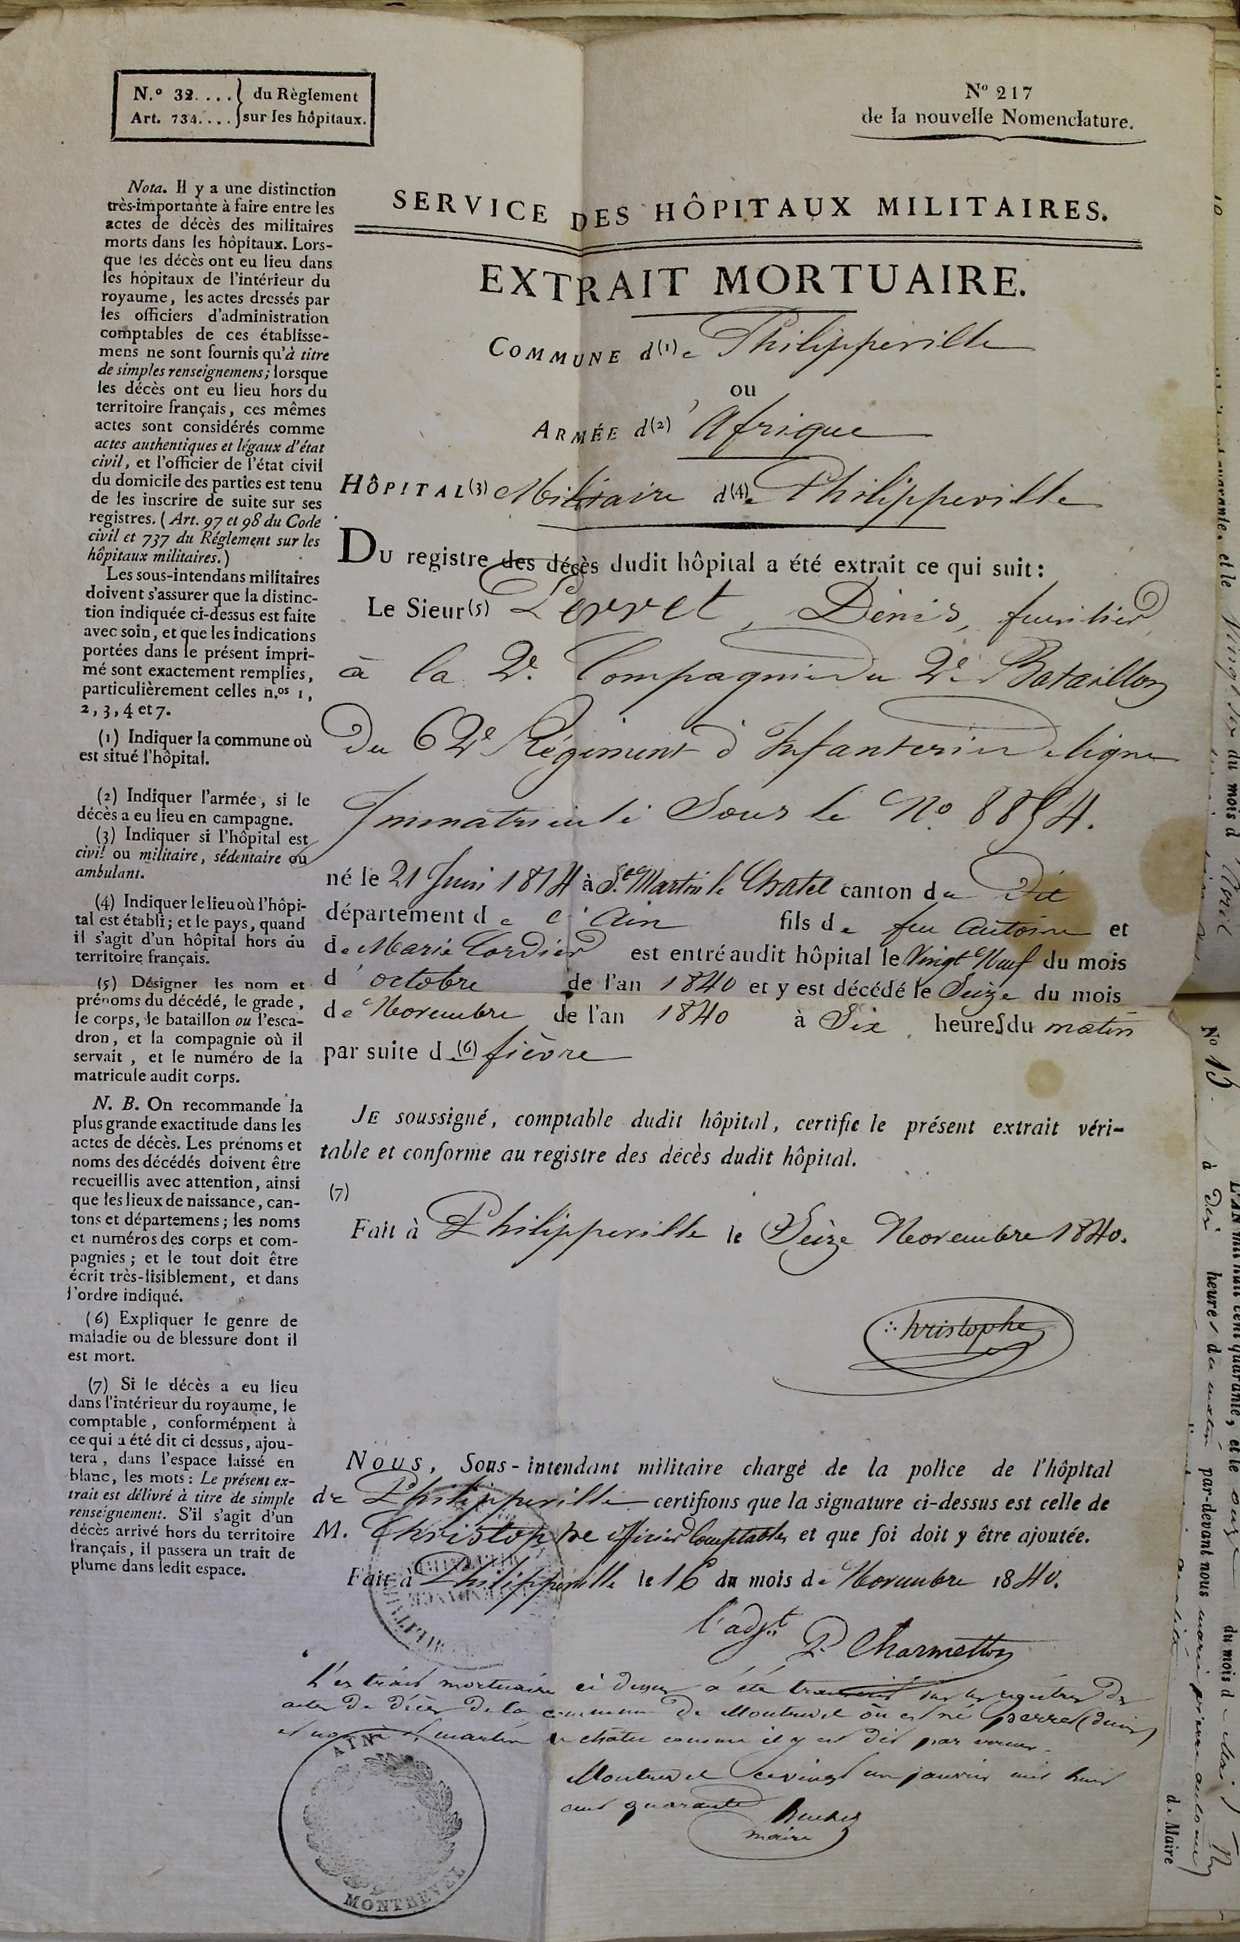 N.º 32. . . . } du Règlement
Art. 734. . . . } sur les hôpitaux.
Nº 217
de la nouvelle Nomenclature.
Nota. Il y a une distinction
très-importante à faire entre les
actes de décès des militaires
morts dans les hôpitaux. Lors-
que les décès ont eu lieu dans
les hôpitaux de l'intérieur du
royaume, les actes dressés par
les officiers d'administration
comptables de ces établisse-
mens ne sont fournis qu'à titre
de simples renseignemens; lorsque
les décès ont eu lieu hors du
territoire français, ces mêmes
actes sont considérés comme
actes authentiques et légaux d'état
civil, et l'officier de l'état civil
du domicile des parties est tenu
de les inscrire de suite sur ses
registres. (Art. 97 et 98 du Code
civil et 737 du Réglement sur les
hôpitaux militaires.)
Les sous-intendans militaires
doivent s'assurer que la distinc-
tion indiquée ci-dessus est faite
avec soin, et que les indications
portées dans le présent impri-
mé sont exactement remplies,
particulièrement celles n.os 1,
2, 3, 4 et 7.
(1) Indiquer la commune où
est situé l'hôpital.
(2) Indiquer l'armée, si le
décès a eu lieu en campagne.
(3) Indiquer si l'hôpital est
civil ou militaire, sédentaire ou
ambulant.
(4) Indiquer le lieu où l'hôpi-
tal est établi; et le pays, quand
il s'agit d'un hôpital hors du
territoire français.
(5) Désigner les nom et
prénoms du décédé, le grade,
le corps, le bataillon ou l'esca-
dron, et la compagnie où il
servait, et le numéro de la
matricule audit corps.
N. B. On recommande la
plus grande exactitude dans les
actes de décès. Les prénoms et
noms des décédés doivent être
recueillis avec attention, ainsi
que les lieux de naissance, can-
tons et départemens; les noms
et numéros des corps et com-
pagnies; et le tout doit être
écrit très-lisiblement, et dans
l'ordre indiqué.
(6) Expliquer le genre de
maladie ou de blessure dont il
est mort.
(7) Si le décès a eu lieu
dans l'intérieur du royaume, le
comptable, conformément à
ce qui a été dit ci dessus, ajou-
tera, dans l'espace laissé en
blanc, les mots: Le présent ex-
trait est délivré à titre de simple
renseignement. S'il s'agit d'un
décès arrivé hors du territoire
français, il passera un trait de
plume dans ledit espace.
SERVICE DES HÔPITAUX MILITAIRES.
EXTRAIT MORTUAIRE.
COMMUNE d(1)e Philippeville
ou
ARMÉE d(2)'Afrique
HÔPITAL(3) Militaire d(4)e Philippeville
DU registre des décès dudit hôpital a été extrait ce qui suit:
Le Sieur(5) Perret, Dénis, fusilier
à la 2e Compagnie du 2e Bataillon
du 62e Régiment d'Infanterie de ligne
Immatriculé Sous le No. 8854.
né le 21 Juin 1814 à St Martin le Chatel canton du dit
département de l'Ain fils de feu Antoine et
de Marie Cordier est entré audit hôpital le Vingt Neuf du mois
d'octobre de l'an 1840 et y est décédé le Seize du mois
de Novembre de l'an 1840 à Six heures du matin
par suite de (6) fièvre
JE soussigné, comptable dudit hôpital, certifie le présent extrait véri-
table et conforme au registre des décès dudit hôpital.
(7)
Fait à Philippeville le Seize Novembre 1840.
Christophe
NOUS, Sous-intendant militaire chargé de la police de l'hôpital
de Philippeville certifions que la signature ci-dessus est celle de
M. Christophe officier Comptable et que foi doit y être ajoutée.
Fait à Philippeville le 16 du mois de Novembre 1840.
l'adjt P. Charmetton
L'extrait mortuaire ci dessus a été transcrit sur les registres des
actes de décès de la commune de Montrevel où est né Perret Denis
et non à St martin le chatel comme il y est dit par erreur.
Montrevel ce vingt un janvier mil huit
cent quarante
maire
AIN
MONTREVEL